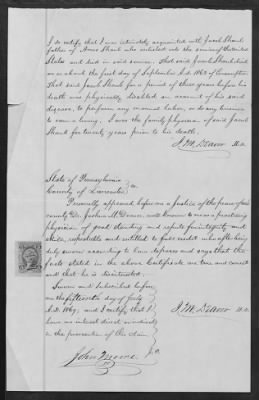 I do certify that I was intimately acquainted with Jacob Shank
father of Amos Shank who enlisted into the service of the United
States and died in said service. That said Jacob Shank died
on or about the first day of September A.D. 1863 of Consumption
That said Jacob Shank for a period of three years before his
death was physically disabled on account of his said
disease, to perform any manual labor, or do any business
to earn a living. I was the family physician of said Jacob
Shank for twenty years prior to his death.
M.D.
State of Pennsylvania
County of Lancaster ss.
Personally appeared before me a Justice of the peace of said
county Dr. Joshua M. well known to me as a practising
physician of good standing and repute for integrity and
skill, respectable and entitled to full credit who after being
duly sworn according to law deposes and says that the
facts stated in the above Certificate are true and correct
and that he is disinterested.
Sworn and subscribed before
me this fifteenth day of July
A.D. 1867, and I certify that I
have no interest direct or indirect
in the prosecution of this claim.
M.D.
John